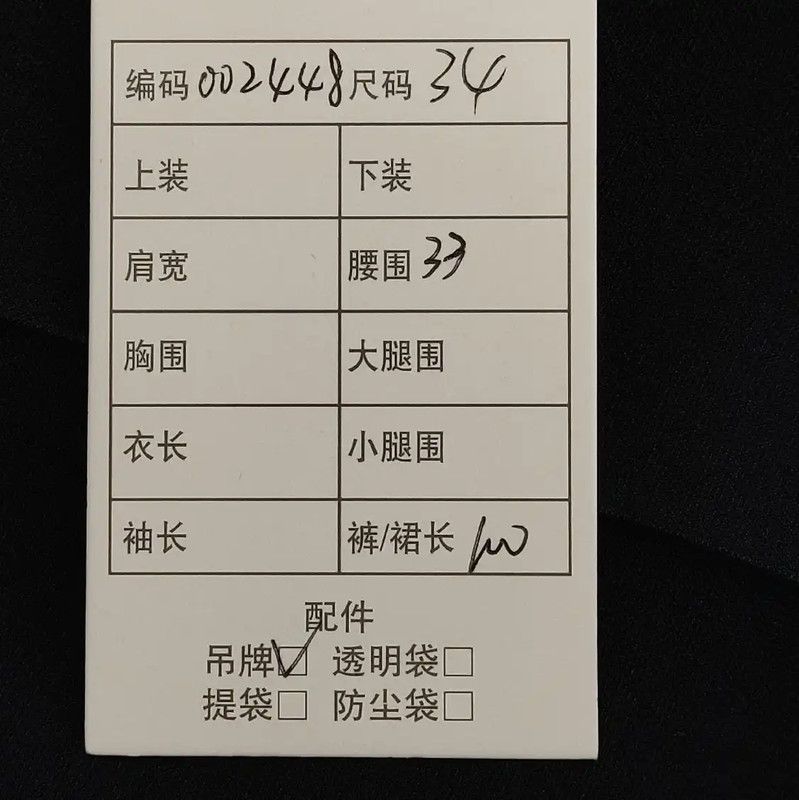 编码 002448 尺码 34
上装 下装
肩宽 腰围 33
胸围 大腿围
衣长 小腿围
袖长 裤/裙长 100
配件
吊牌☑ 透明袋□
提袋□ 防尘袋□